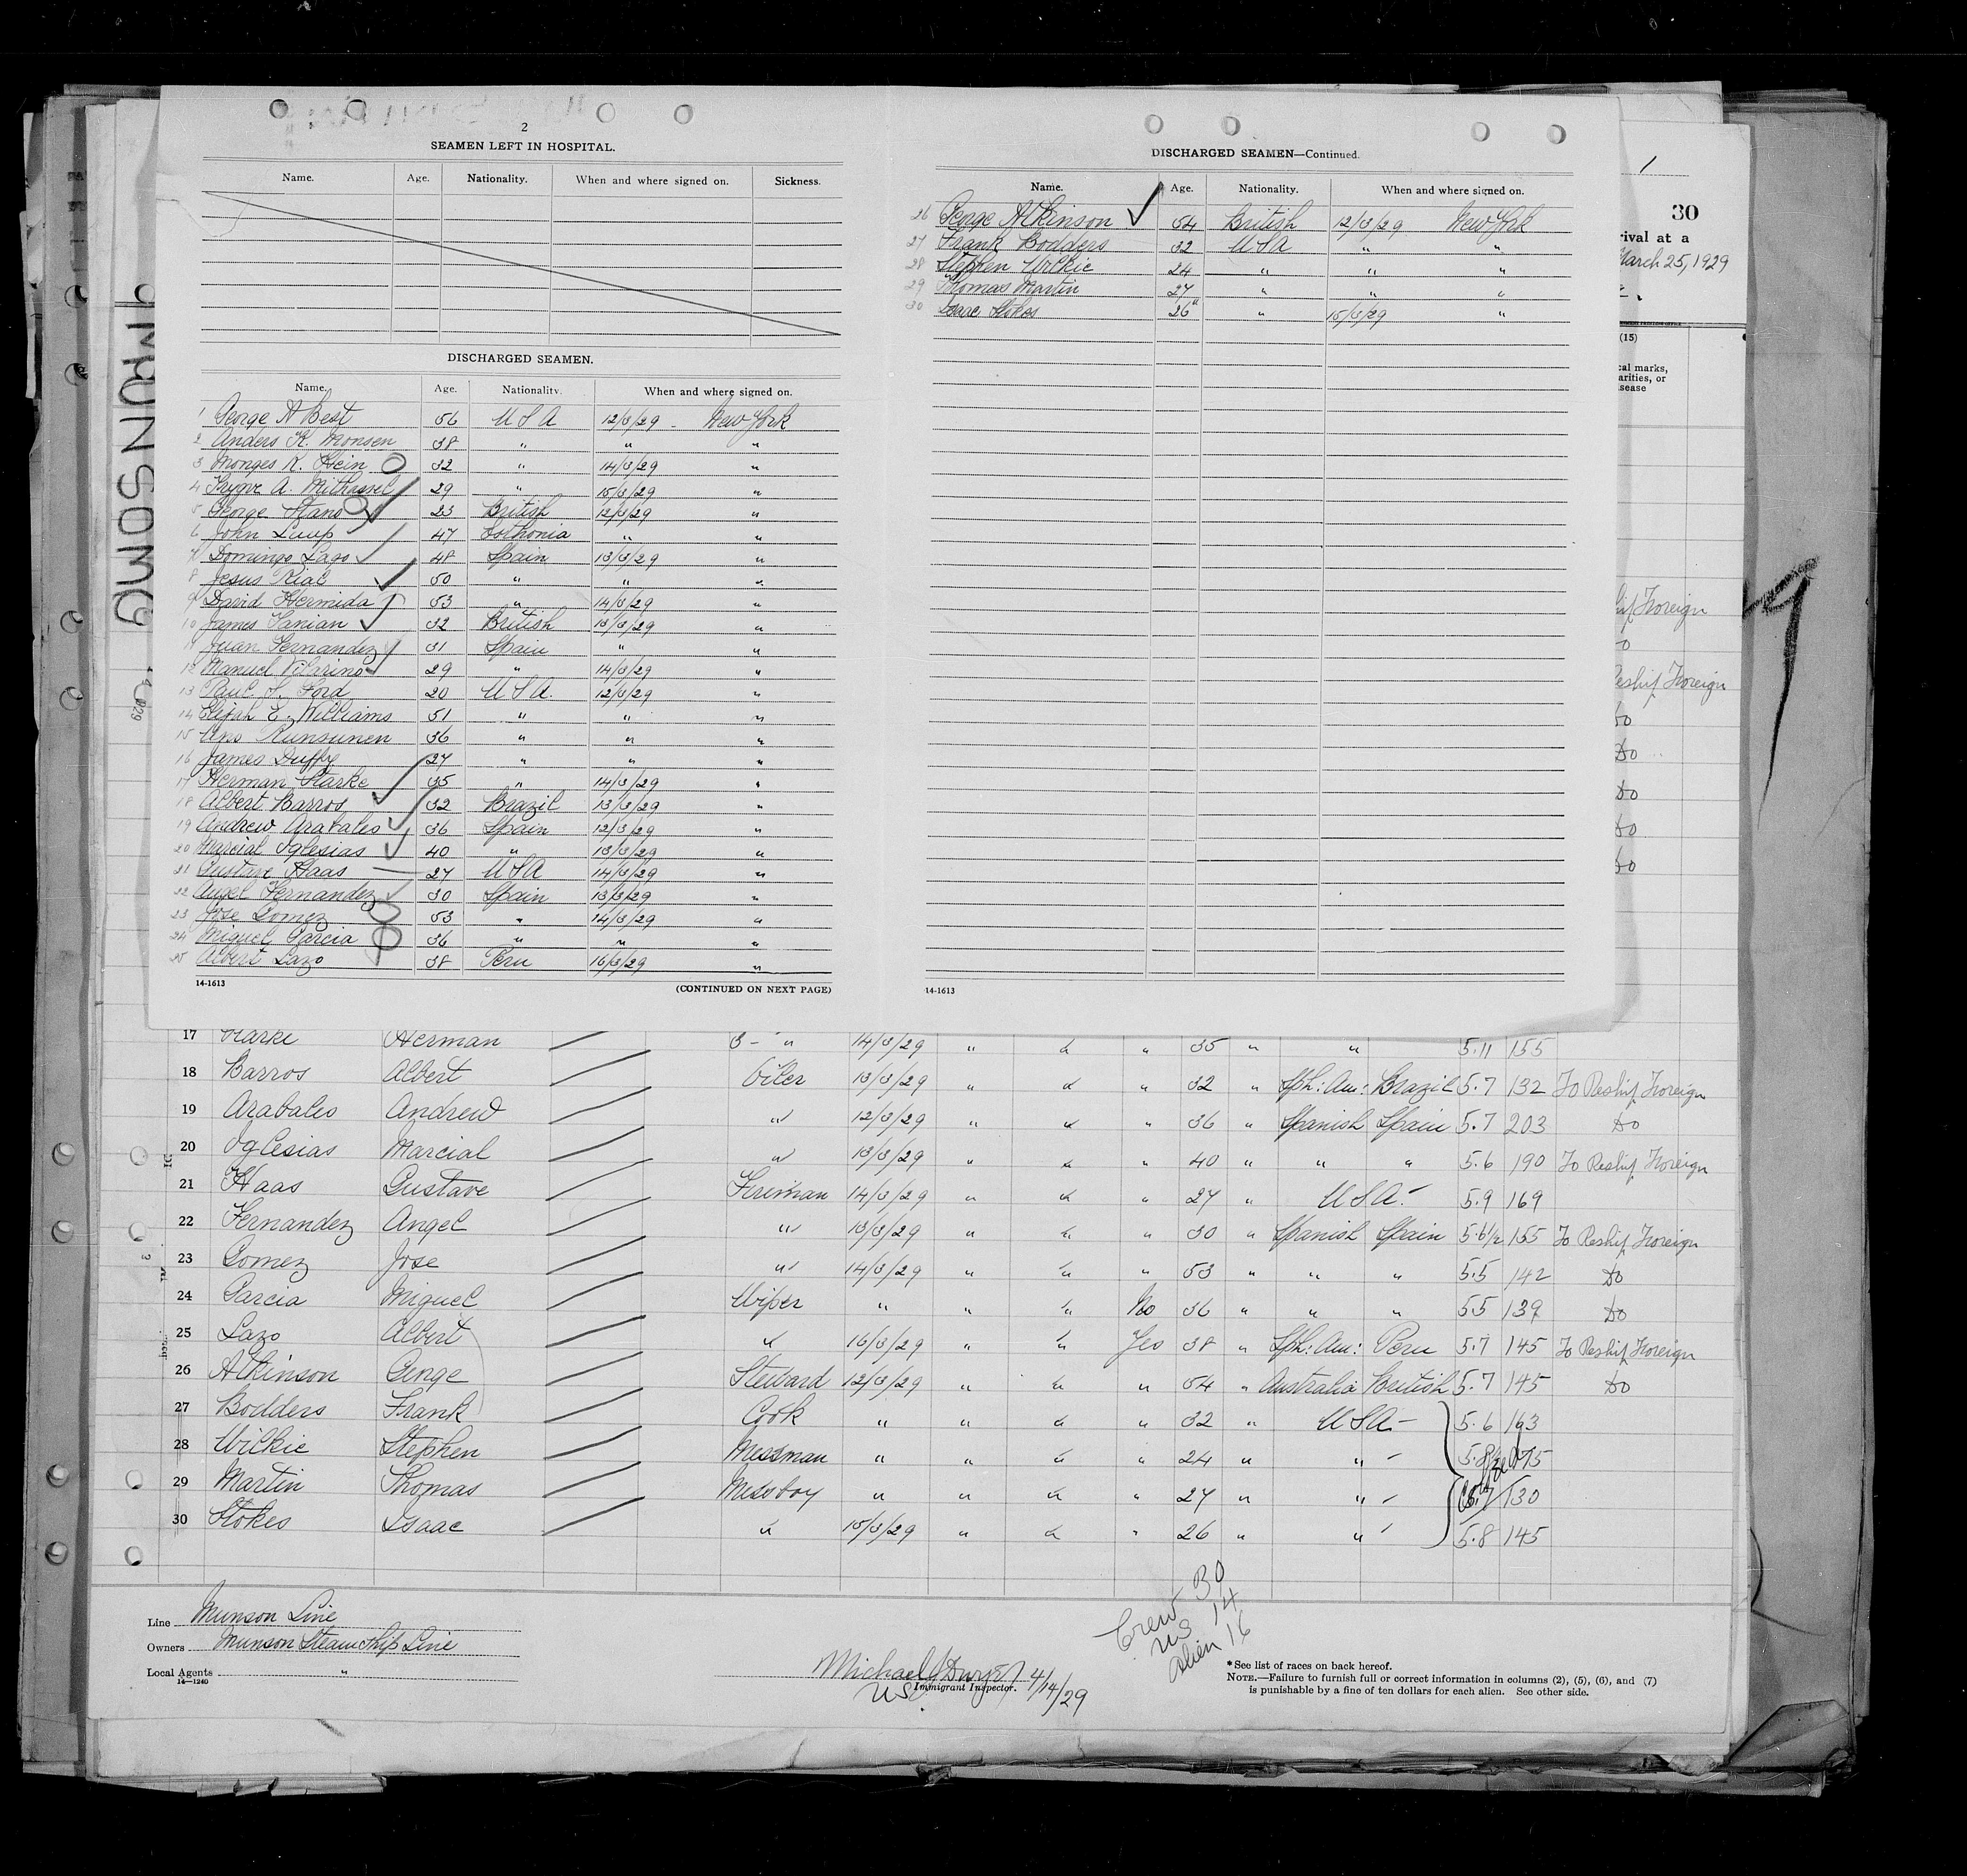 2
SEAMEN LEFT IN HOSPITAL.
Name. Age. Nationality. When and where signed on. Sickness.
DISCHARGED SEAMEN.
Name. Age. Nationality. When and where signed on.
1 George A Best 56 USA 12/3/29 - New York
2 Anders K. Monsen 38 " " "
3 Monges K. Hein 32 " 14/3/29 "
4 Trygve A. 29 " 15/3/29 "
5 George 23 British 12/3/29 "
6 John Luup 47 Esthonia " "
7 Domingo Lago 48 Spain 13/3/29 "
8 Jesus Rial 50 " " "
9 David Hermida 53 " 14/3/29 "
10 James 32 British 13/3/29 "
11 Juan Fernandez 31 Spain " "
12 Manuel Vilarino 29 " 14/3/29 "
13 Paul J. Ford 20 USA. 12/3/29 "
14 Elijah E. Williams 51 " " "
15 Uno 36 " " "
16 James Duffy 27 " " "
17 Herman Starke 35 " 14/3/29 "
18 Albert Barros 32 Brazil 13/3/29 "
19 Andrew Arabales 36 Spain 12/3/29 "
20 Marcial Iglesias 40 " 13/3/29 "
21 Gustave Haas 27 USA 14/3/29 "
22 Angel Fernandez 30 Spain 13/3/29 "
23 Jose Gomez 53 " 14/3/29 "
24 Miguel Garcia 36 " " "
25 Albert Lazo 38 Peru 16/3/29 "
14-1613 (CONTINUED ON NEXT PAGE)
DISCHARGED SEAMEN—Continued.
Name. Age. Nationality. When and where signed on.
26 George Atkinson 54 British 12/3/29 New York
27 Frank Bodders 32 USA " "
28 Stephen Wilkie 24 " " "
29 Thomas Martin 27 " " "
30 Isaac Stokes 26 " 15/3/29 "
14-1613
1
30
rival at a
March 25, 1929
(15)
cal marks,
arities, or
sease
Foreign
Do
Reship Foreign
Do
Do
Do
Do
Do
MUNSOMO
17 Starke Herman 3 - " 14/3/29 " " " 35 " " 5.11 155
18 Barros Albert Oiler 13/3/29 " " " 32 " Sph: Am: Brazil 5.7 132 To Reship Foreign
19 Arabales Andrew " 12/3/29 " " " 36 " Spanish Spain 5.7 203 Do
20 Iglesias Marcial " 13/3/29 " " " 40 " " " 5.6 190 To Reship Foreign
21 Haas Gustave Fireman 14/3/29 " " " 27 " USA - 5.9 169
22 Fernandez Angel " 13/3/29 " " " 30 " Spanish Spain 5.6½ 155 To Reship Foreign
23 Gomez Jose " 14/3/29 " " " 53 " " " 5.5 142 Do
24 Garcia Miguel Wiper " " " No 36 " " " 5.5 139 Do
25 Lazo Albert " 16/3/29 " " Yes 38 " Sph: Am: Peru 5.7 145 To Reship Foreign
26 Atkinson George Steward 12/3/29 " " " 54 " Australia British 5.7 145 Do
27 Bodders Frank Cook " " " " 32 " USA - 5.6 163
28 Wilkie Stephen Messman " " " " 24 " " - 5.8½ 175
29 Martin Thomas Messboy " " " " 27 " " - 130
30 Stokes Isaac " 15/3/29 " " " 26 " " - 5.8 145
Crew 30
US 14
Alien 16
Line Munson Line
Owners Munson Steam Ship Line
Local Agents "
14—1240
Michael J Dwyer 4/14/29
US Immigrant Inspector.
* See list of races on back hereof.
NOTE.—Failure to furnish full or correct information in columns (2), (5), (6), and (7)
is punishable by a fine of ten dollars for each alien. See other side.